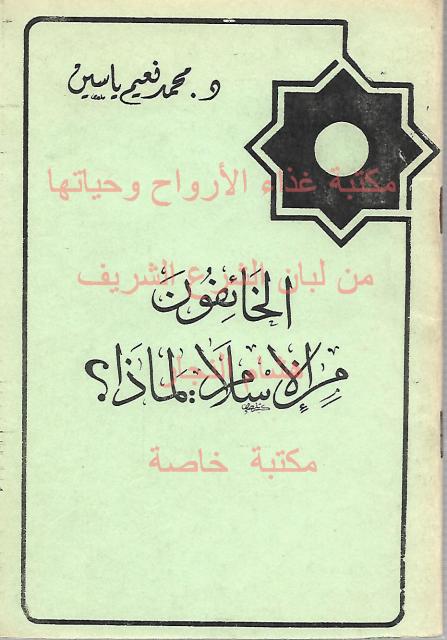 د. محمد نعيم ياسين
مكتبة غذاء الأرواح وحياتها
من لبان الضرع الشريف
الخَائِفُونَ
هشام النجار
مِنَ الإِسْلَامِ: لمَاذَا؟
مكتبة خاصة